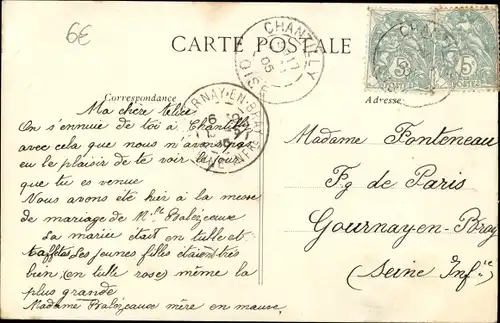 6€
CARTE POSTALE
CHANTILLY
OISE
GOURNAY-EN-BRAY
Correspondance
Adresse
5
5
POSTES
Ma chère
On s'ennuie de toi à Chantilly
avec cela que nous n'avons pas
eu le plaisir de te voir le jour
que tu es venue
Nous avons été hier à la messe
de mariage de Mlle Balézeaux
La mariée était en tulle et
taffetas. Les jeunes filles étaient très
bien, (en tulle rose) même la
plus grande
Madame Balézeaux mère en mauve
Madame Fonteneau
Fg de Paris
Gournay-en-Bray
(Seine Infre)